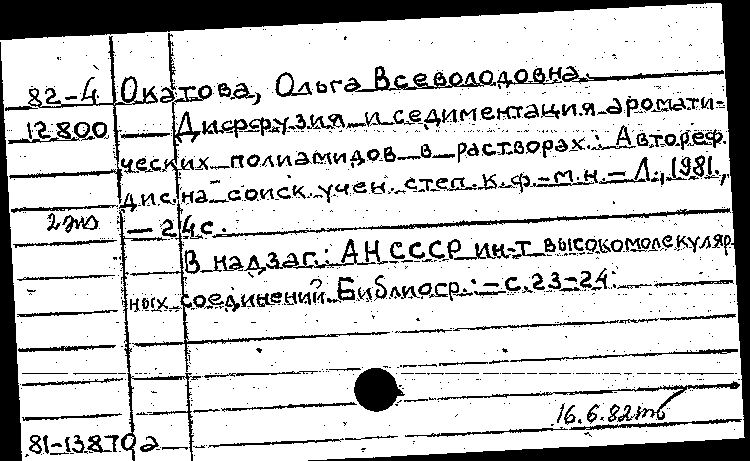 82-4 Окатова, Ольга Всеволодовна.
12800 — Диффузия и седиментация аромати-
ческих полиамидов в растворах: Автореф.
дис. на соиск. учен. степ. к.ф.-м.н. – Л., 1981.,
2 эк — 24с.
В надзаг.: АН СССР ин-т высокомолекуляр
ных соединений. Библиогр.: – с.23-24.
16.6.82
81-13870а